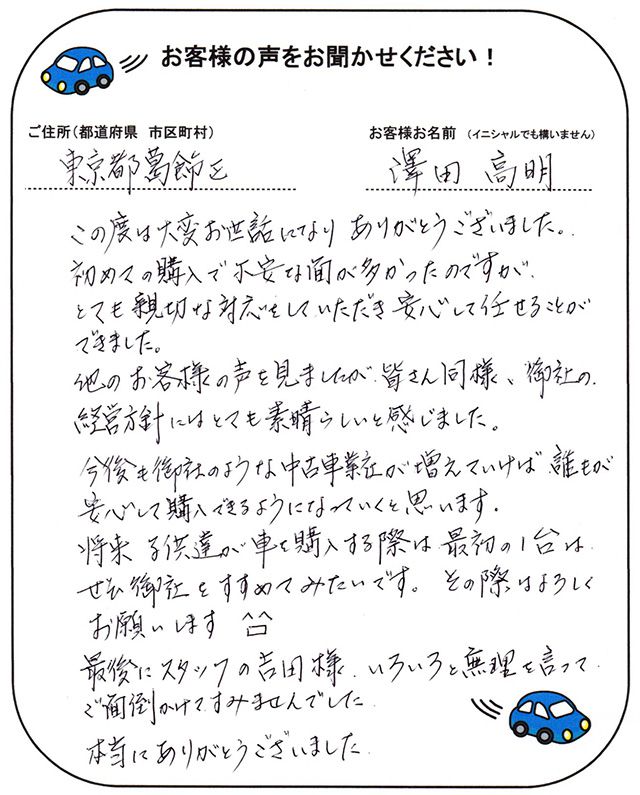 お客様の声をお聞かせください！
ご住所（都道府県 市区町村）
お客様お名前 （イニシャルでも構いません）
東京都葛飾区
澤田 高明
この度は大変お世話になり ありがとうございました。
初めての購入で不安な面が多かったのですが、
とても親切な対応をしていただき安心して任せることが
できました。
他のお客様の声を見ましたが 皆さん同様、御社の
経営方針にはとても素晴らしいと感じました。
今後も御社のような中古車業社が増えていけば 誰もが
安心して購入できるようになっていくと思います。
将来 子供達が車を購入する際は最初の1台は
ぜひ御社をすすめてみたいです。 その際はよろしく
お願いします ^□^
最後にスタッフの吉田様、いろいろと無理を言って
ご面倒かけてすみませんでした
本当にありがとうございました。